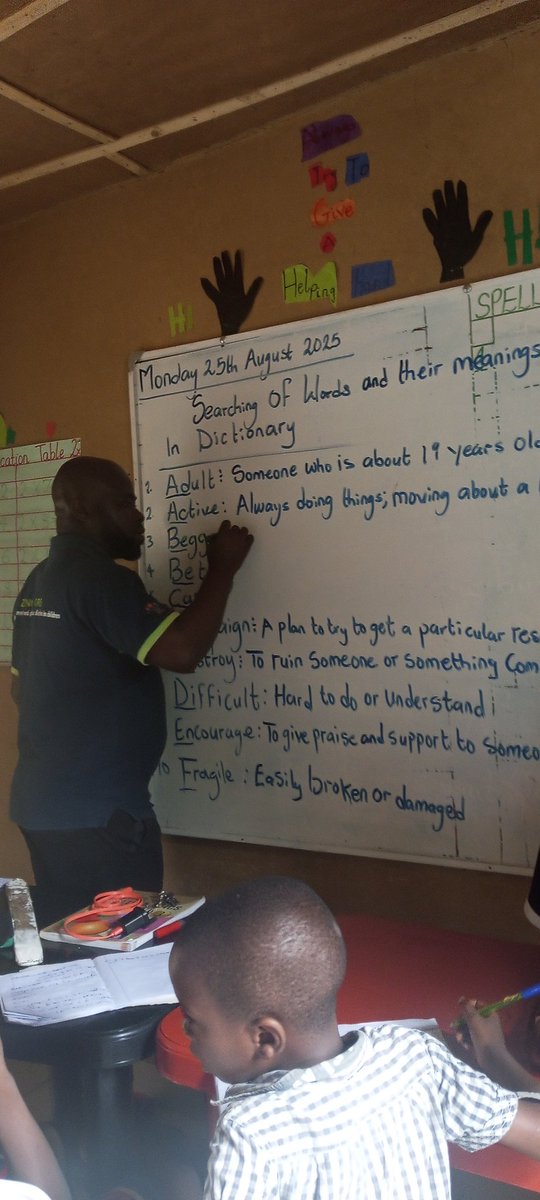 Always
Try To
Give
A
Helping Hand
Hi
SPELL
Monday 25th August 2025
Searching Of Words and their meanings
In Dictionary
1. Adult: Someone who is about 19 years old
2 Active: Always doing things; moving about a
3 Begg
4 Bet
Ca
aign: A plan to try to get a particular res
stroy: To ruin Someone or something Com
Difficult: Hard to do or Understand
Encourage: To give praise and support to Someo
10 Fragile: Easily broken or damaged
cation Table